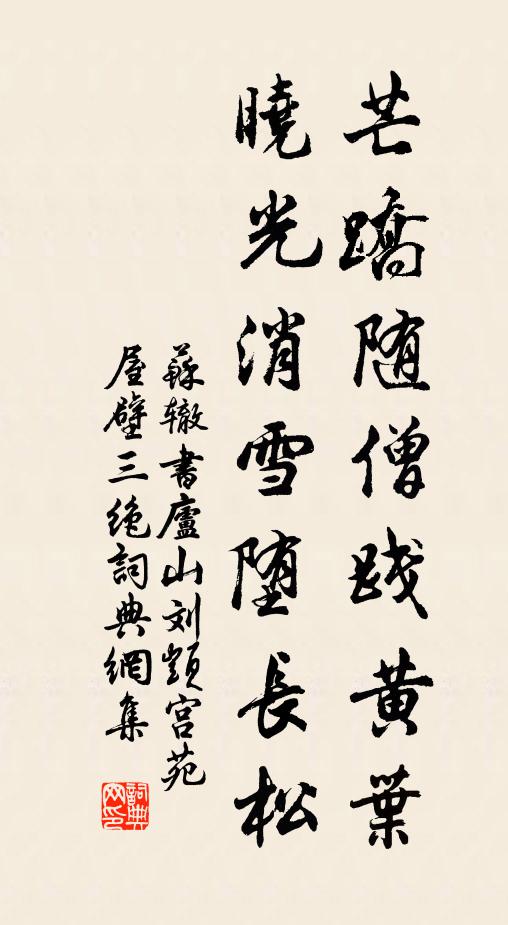 芒蹻随僧践黄葉
曉光消雪堕長松
蘇辙書廬山刘顗宫苑
屋壁三绝詞典網集
詞典网印